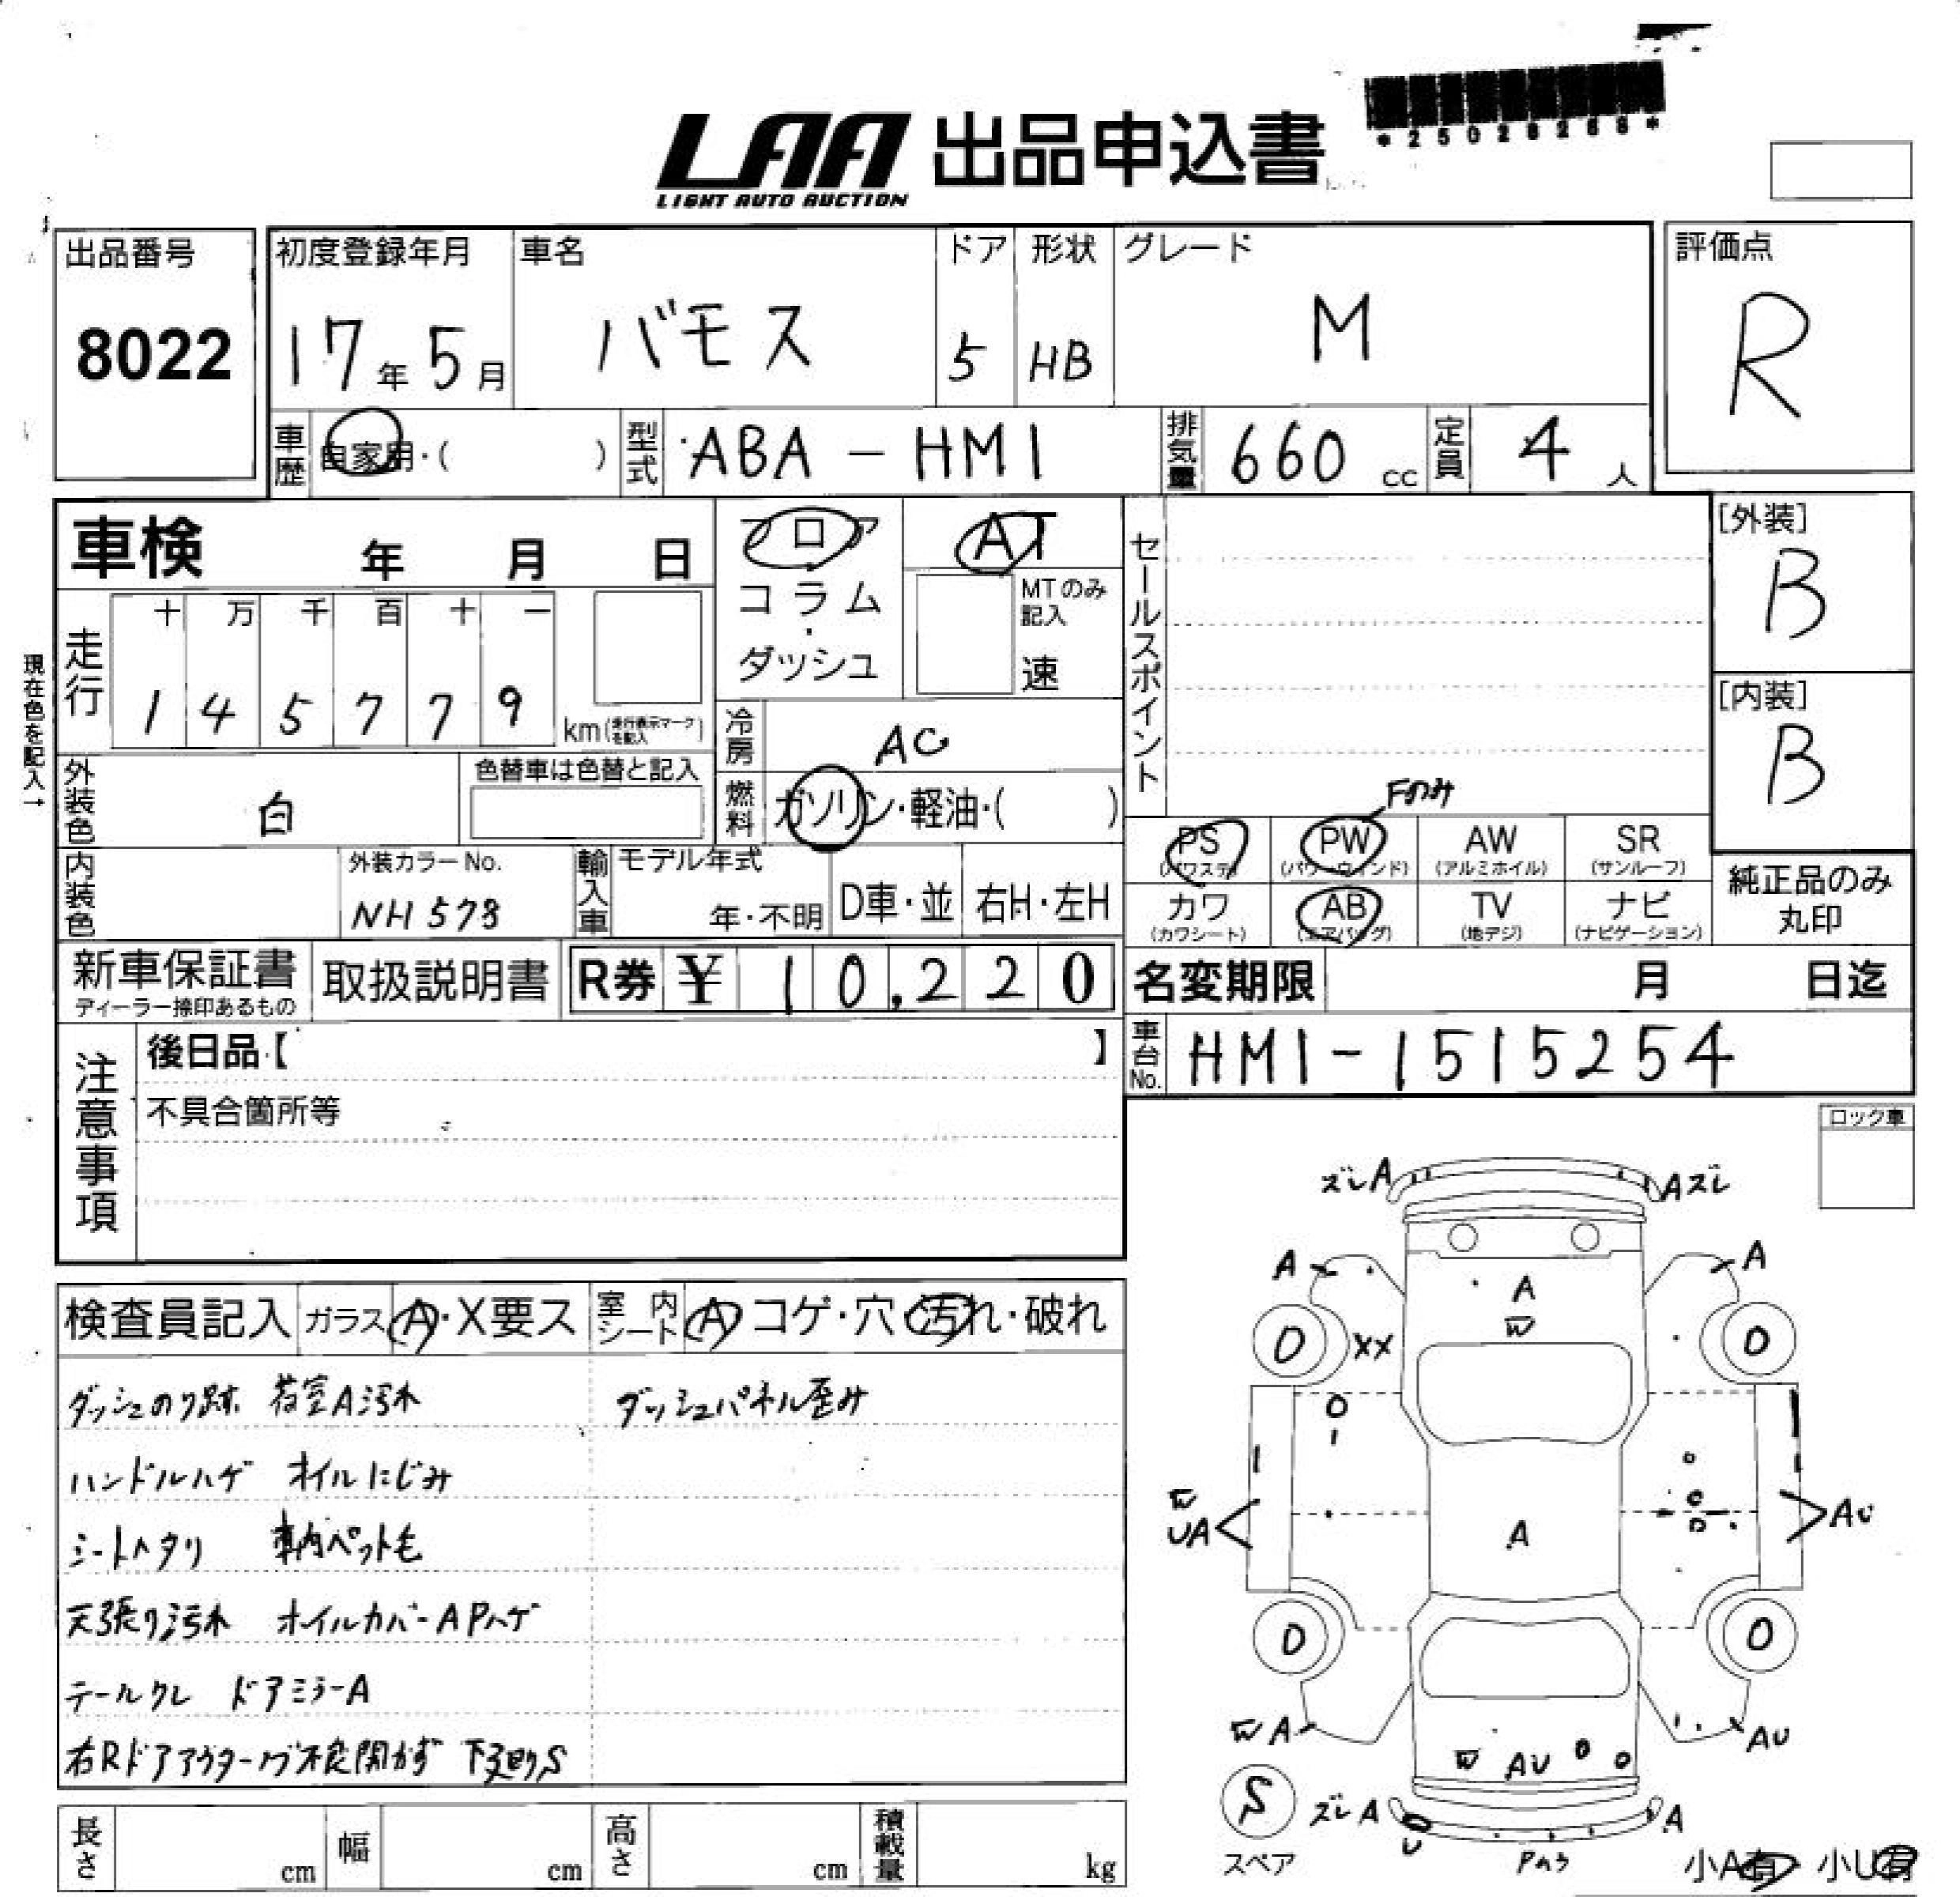 LAA 出品申込書
LIGHT AUTO AUCTION
*25028268*
出品番号
8022
初度登録年月
17年5月
車名
バモス
ドア
5
形状
HB
グレード
M
評価点
R
車歴
自家用・( )
型式
ABA-HM1
排気量
660 cc
定員
4 人
車検 年 月 日
フロア
コラム
・
ダッシュ
AT
MTのみ
記入
速
セールスポイント
[外装]
B
[内装]
B
現在色を記入→
走行
十 万 千 百 十 一
1 4 5 7 7 9
km(走行表示マークを記入)
冷房
AC
外装色
白
色替車は色替と記入
燃料
ガソリン・軽油・( )
Fのみ
PS
(パワステ)
PW
(パワーウィンド)
AW
(アルミホイル)
SR
(サンルーフ)
カワ
(カワシート)
AB
(エアバッグ)
TV
(地デジ)
ナビ
(ナビゲーション)
純正品のみ
丸印
内装色
外装カラーNo.
NH578
輸入車
モデル年式
年・不明
D車・並
右H・左H
新車保証書
ディーラー捺印あるもの
取扱説明書
R券 ¥ 10,220
名変期限 月 日迄
車台No.
HM1-1515254
注意事項
後日品【 】
不具合箇所等
ロック車
検査員記入
ガラス A・X要ス
室内シート A コゲ・穴・汚れ・破れ
ダッシュのり跡 荷室A汚れ
ダッシュパネル歪み
ハンドルハゲ オイルにじみ
シートヘタリ 車内ペット毛
天張り汚れ オイルカバーAPハゲ
テールワレ ドアミラーA
右Rドアアウターノブ不良開かず 下廻りS
長さ cm
幅 cm
高さ cm
積載量 kg
ズレA
Aズレ
A
A
A
W
XX
W
UA
AU
A
WA
AU
W AU
S
スペア
ズレA
U
A
Pハゲ
小A有 小U有